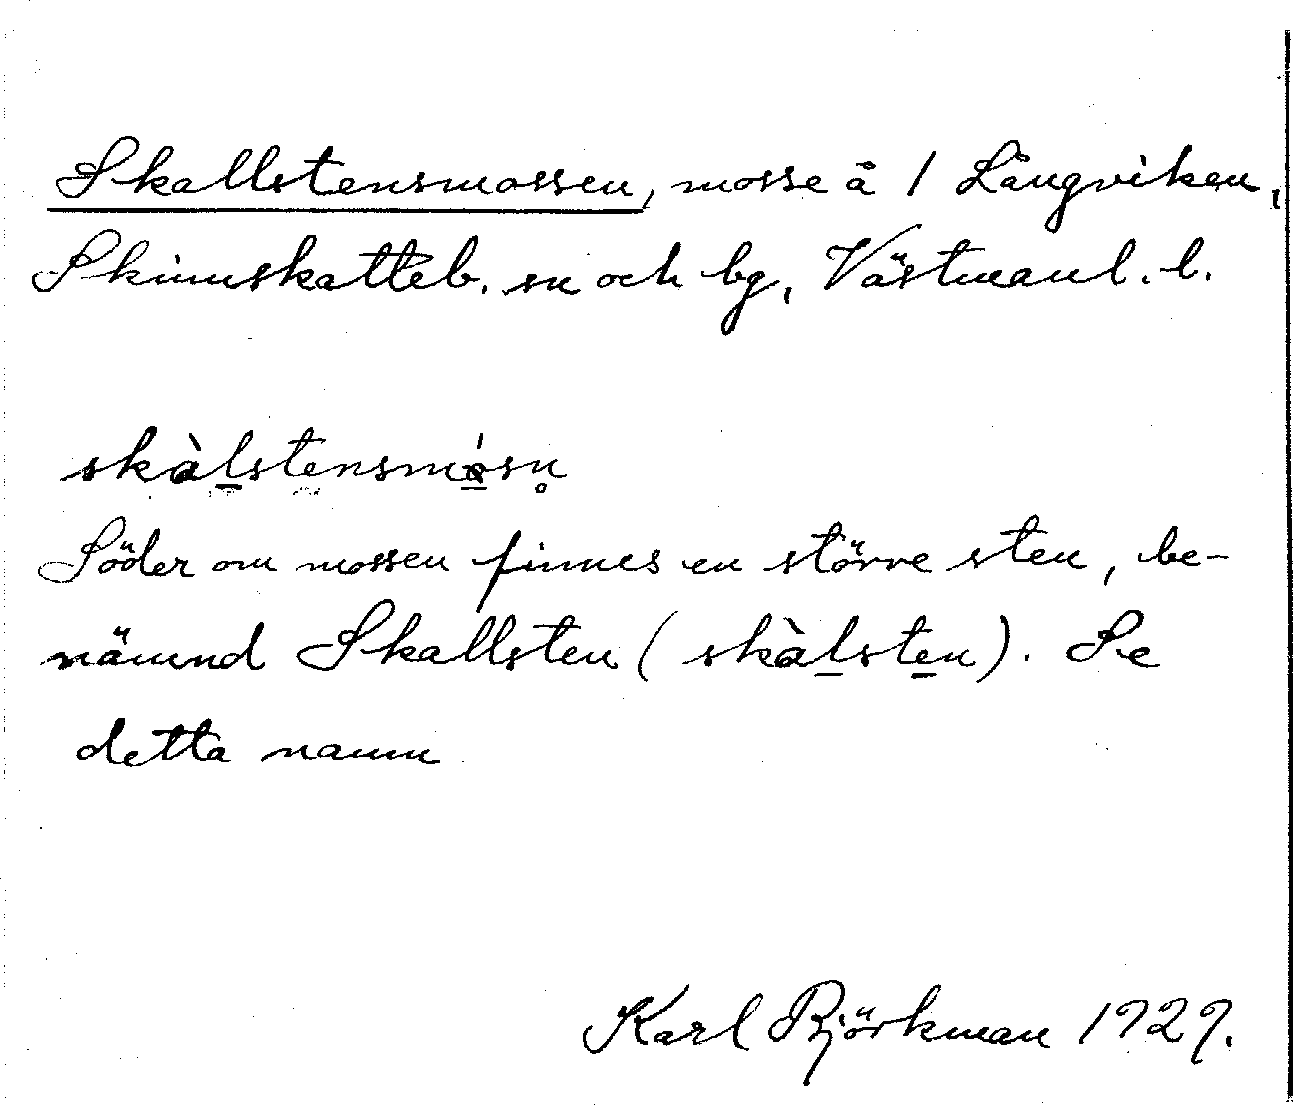 Skallstensmossen, mosse å 1 Långviken,
Skinnskatteb. sn och bg, Västmanl. l.
skàl̠stensmó̠sn̥
Söder om mossen finnes en större sten, be-
nämnd Skallsten (skàl̠ste̠n). Se
detta namn
Karl Björkman 1929.